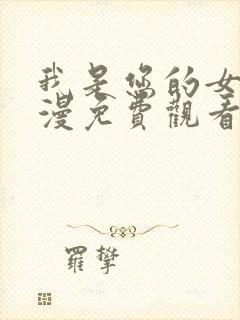 我是您的女
漫免費觀看
羅攀